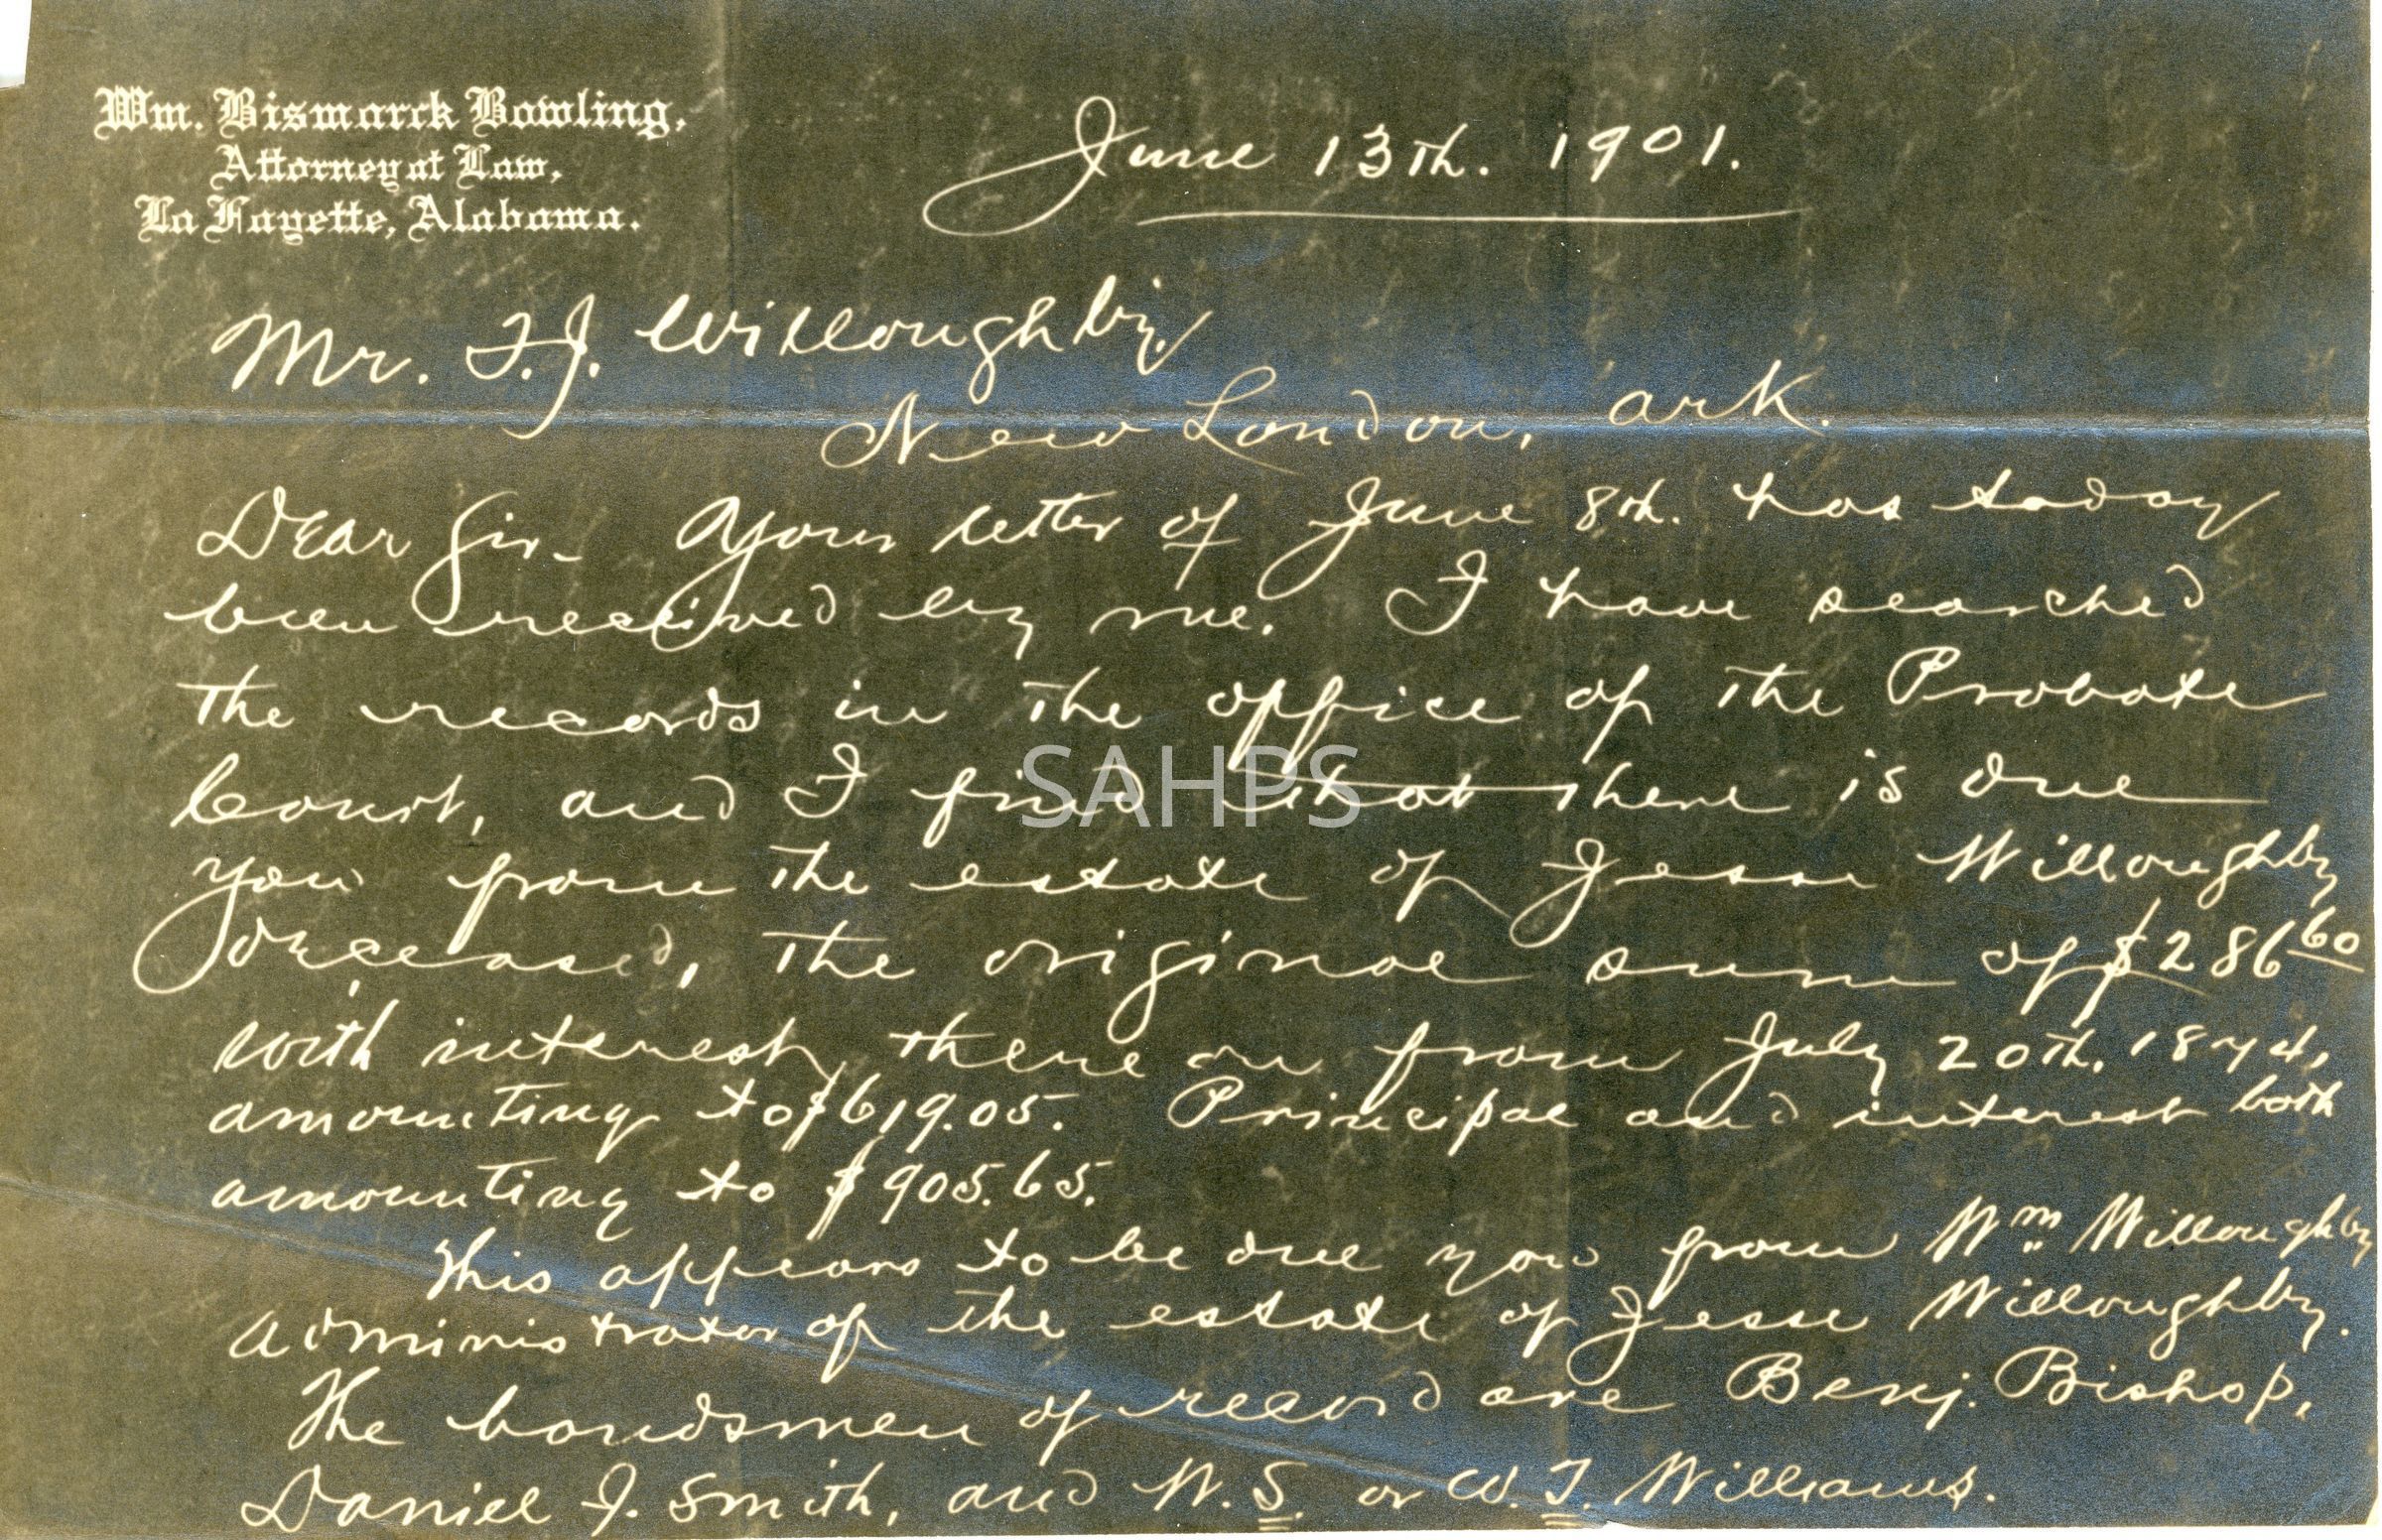 Wm. Bismarck Bowling,
Attorney at Law,
La Fayette, Alabama.
June 13th. 1901.
Mr. T. J. Willoughby,
New London, Ark.
Dear Sir- Your letter of June 8th. has today
been received by me. I have searched
the records in the office of the Probate
Court, and I find that there is due
you from the estate of Jesse Willoughby
deceased, the original sum of $286 60
with interest there on from July 20th. 1874,
amounting to $619.05. Principal and interest both
amounting to $905.65.
This appears to be due you from Wm Willoughby
administrator of the estate of Jesse Willoughby.
The bondsmen of record are Benj. Bishop,
Daniel J. Smith, and W. S. or W. T. Williams.
SAHPS